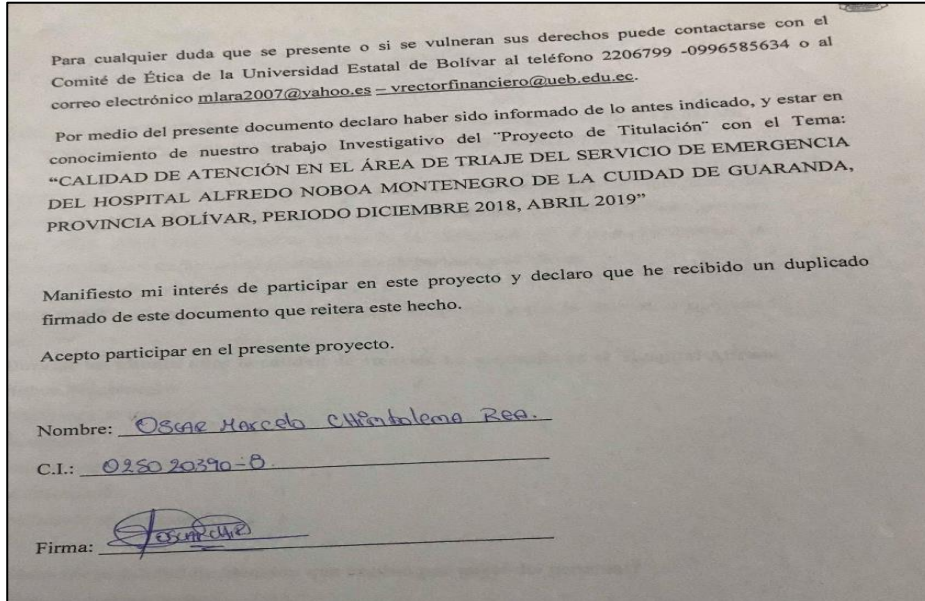 Para cualquier duda que se presente o si se vulneran sus derechos puede contactarse con el
Comité de Ética de la Universidad Estatal de Bolívar al teléfono 2206799 -0996585634 o al
correo electrónico mlara2007@yahoo.es – vrectorfinanciero@ueb.edu.ec.
Por medio del presente documento declaro haber sido informado de lo antes indicado, y estar en
conocimiento de nuestro trabajo Investigativo del ¨Proyecto de Titulación¨ con el Tema:
“CALIDAD DE ATENCIÓN EN EL ÁREA DE TRIAJE DEL SERVICIO DE EMERGENCIA
DEL HOSPITAL ALFREDO NOBOA MONTENEGRO DE LA CUIDAD DE GUARANDA,
PROVINCIA BOLÍVAR, PERIODO DICIEMBRE 2018, ABRIL 2019”
Manifiesto mi interés de participar en este proyecto y declaro que he recibido un duplicado
firmado de este documento que reitera este hecho.
Acepto participar en el presente proyecto.
Nombre: OSCAR Marcelo Rea.
C.I.: 025020390-8
Firma: